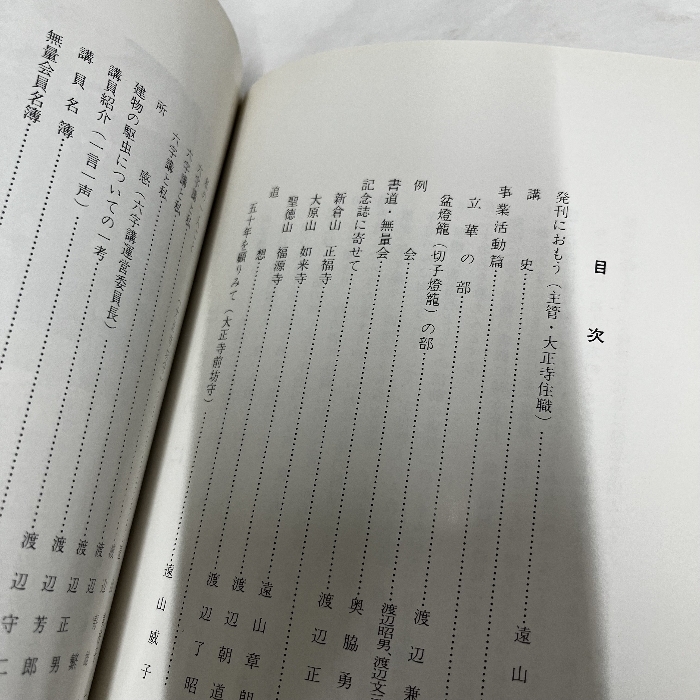 目次
発刊におもう(主管・大正寺住職) 遠山
講史
事業活動篇
立華の部
盆燈籠(切子燈籠)の部 渡辺兼
例会 渡辺昭男、渡辺文三
書道・無量会 奥脇勇
記念誌に寄せて 渡辺正
新倉山 正福寺 遠山章
大原山 如来寺 渡辺朝道
聖徳山 福源寺 渡辺了昭
追想
五十年を顧りみて(大正寺前坊守) 遠山威子
六字講と私
六字講と私
所感(六字講運営委員長)
建物の駆虫についての一考
講員紹介(一言一声)
講員名簿
無量会員名簿
渡辺
渡辺正男
渡辺芳郎
守二